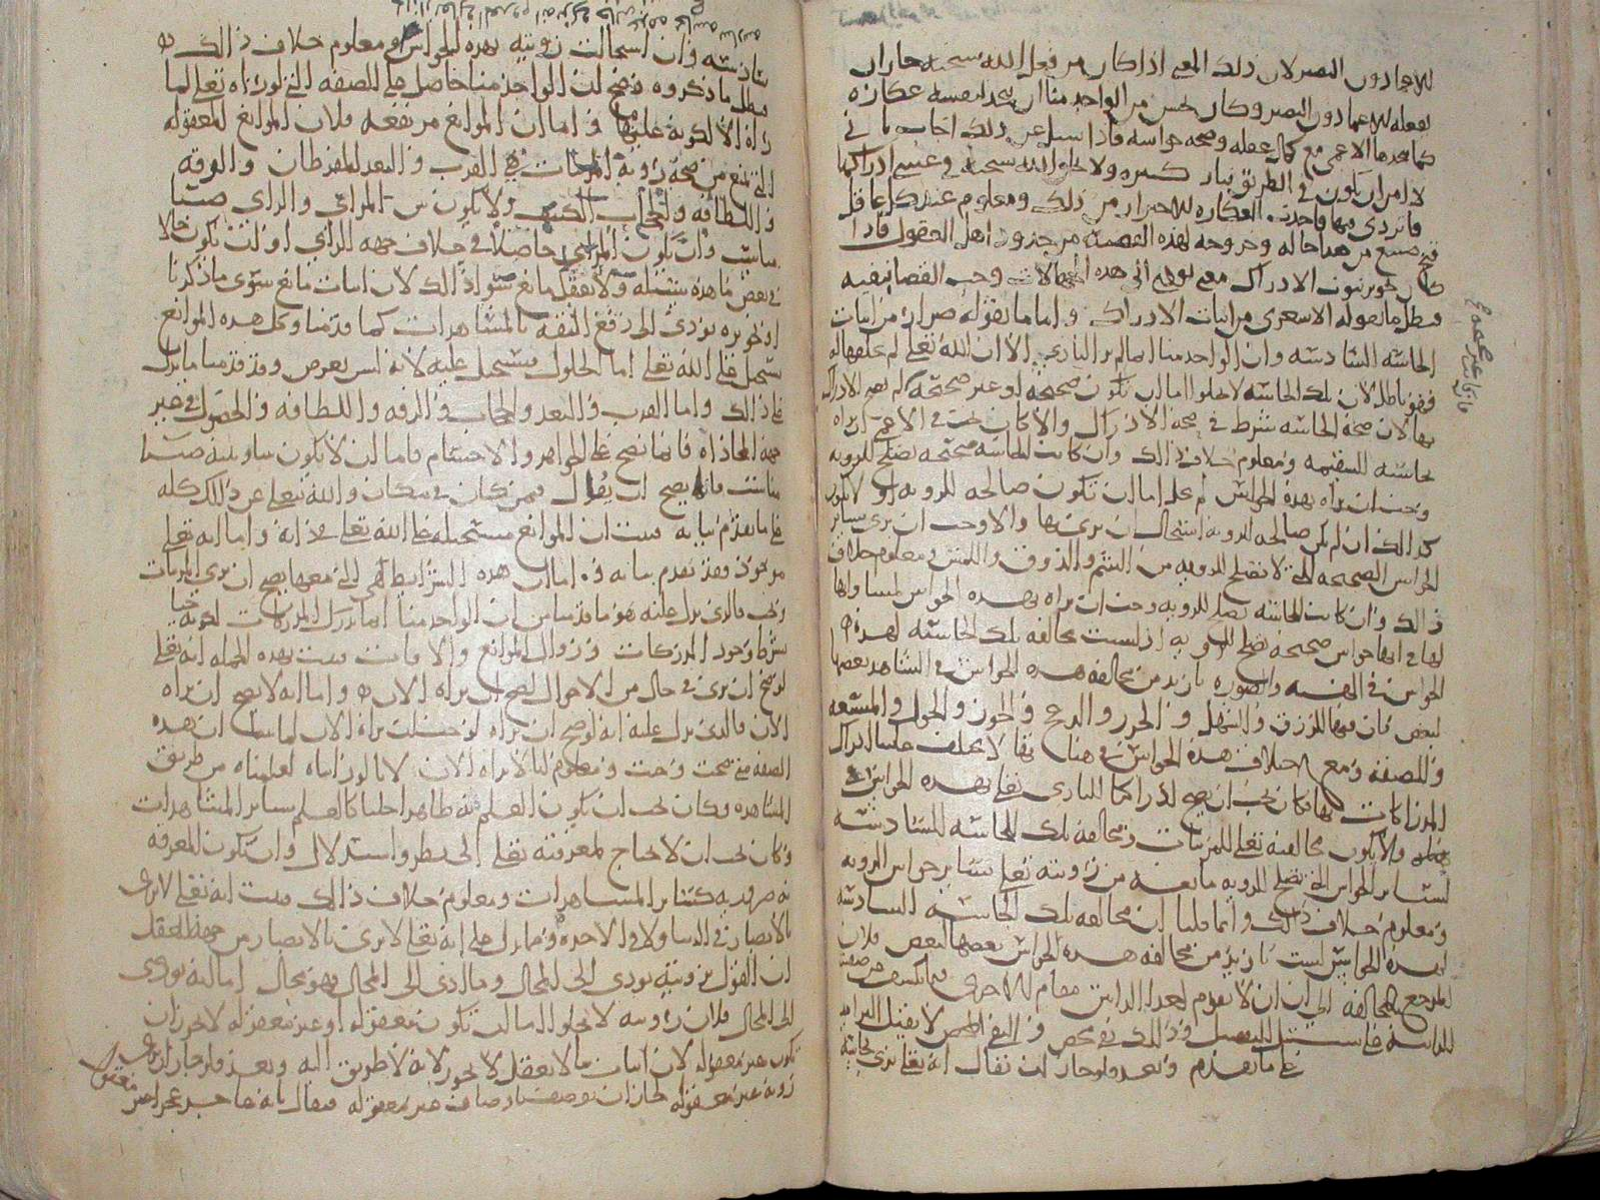 للاعما دون البصير لان ذلك المعنى اذا كان من فعل الله سبحنه جاز ان
يفعله للاعما دون البصير وكان يحسن من الواحد منا ان يتخذ لنفسه عكازه
كما يتخذها الاعمى مع كمال عقله وصحة حواسه فاذا سيل عن ذلك اجاب باني
لا امن ان يكون في الطريق بيار كثيره ولا يخلق الله سبحنه في عيني ادراكها
فاتردى فيها فاخذت العكازه للاحتراز من ذلك ومعلوم عند كل عاقل
قبح صنيع من هذا حاله وخروجه لهذه القضيه من حد ذوي اهل العقول فاذا
كان تجويز ثبوت الادراك معنى يؤدي الى هذه الجهالات وجب القضا بنفيه
فبطل ما يقوله الاشعري من اثبات الادراك واما ما يقوله ضرار من اثبات
الحاسه السادسه وان الواحد منا انما لم ير الباري الا ان الله تعلى لم يخلقها له
فهو باطل لان تلك الحاسه لا يخلوا اما ان تكون صحيحه او غير صحيحه لم يصح الادراك
بها لان صحة الحاسه شرط في صحة الادراك والا كان يجب في الاعمى ان يراه
بحاسته السقيمه ومعلوم خلاف ذالك وان كانت الحاسه صحيحه تصلح للرويه
وجب ان يراه بهذه الحواس ثم نحو اما ان تكون صالحه للرويه او لا تكون
كذالك ان لم تكن صالحه للرويه استحال ان يرى بها والا وجب ان يرى بساير
الحواس الصحيحه التي لا تصلح للرويه من الشم والذوق واللمس ومعلوم خلاف
ذالك وان كانت الحاسه تصلح للرويه وجب ان يراه بهذه الحواس لمساواتها
لها في انها حواس صحيحه تصلح للرويه اذ ليست مخالفة تلك الحاسه لهذه
الحواس في الهيئه والصوره بازيد من مخالفة هذه الحواس في الشاهد بعضها
لبعض فان فيها الزرق والشهل والخزر والدعج والحور والحول والمتسعه
والضيقه ومع اختلاف هذه الحواس في هذا فانها لا يختلف حالنا في ادراك
المدركات بها فكان يجب ان يصح ادراكنا للباري تعلى بهذه الحواس
والا يكون مخالفته تعلى للمرئيات ومخالفة تلك الحاسه السادسه
لساير الحواس التي تصلح للرويه مانعه من رؤيته تعلى بساير حواس الرويه
ومعلوم خلاف ذلك وانما قلنا ان مخالفة تلك الحاسه السادسه
لهذه الحواس ليست بازيد من مخالفة هذه الحواس بعضها لبعض فلان
المرجع بالمخالفه الى ان لا تقوم احدا الذاتين مقام الاخرى فيما يكشف عن صفه
الذات على سبيل التفصيل وذالك نفي محض والنفي المحض لا يقبل التزايد
على ما تقدم وبعد فلو جاز ان يقال انه تعلى يرى بحاسه
سادسه وان استحالت رؤيته بهذه الحواس ومعلوم خلاف ذالك
فبطل ما ذكروه فصح لنا ان الواحد منا حاصل على الصفه التي لو راه تعلى لما
راه الا لكونه عليها واما ان الموانع مرتفعه فلان الموانع المعقوله
التي تمنع من صحة رؤية المرئيات هي القرب والبعد المفرطان والرقه
واللطافه والحجاب الكثيف ولا يكون بين المرائي والرائي ضيا
مناسب وان يكون المرائي حاصلا في خلاف جهة الرائي او ان يكون حالا
في بعض ما هذه سبيله ولا يعقل مانع سوا ذالك لان اثبات مانع سوى ما ذكرنا
او تجويزه يؤدي الى رفع الثقه بالمشاهدات كما قدمنا وكل هذه الموانع
يستحيل على الله تعلى اما الحلول فيستحيل عليه لانه ليس بعرض وقد قدمنا ما يدل
على ذالك واما القرب والبعد والحجاب والرقه واللطافه والحصول في غير
جهة المحاذاه فانما تصح على الجواهر والاجسام فاما ان لا يكون بينا وبينه ضيا
مناسب فانما يصح ان يقال فيمن كان في مكان والله تعلى عن ذالك كله
على ما تقدم بيانه فثبت ان الموانع مستحيله على الله تعلى في ذاته واما انه تعلى
موجود فقد تقدم بيانه واما ان هذه الشرايط هي التي معها يصح ان يرى المرئيات
وتجب فالذي يدل عليه هو ما قدمنا من ان الواحد منا انما يدرك المدركات لكونه حيا
بشرط وجود المدركات وزوال الموانع والا فاتت فثبت بهذه الجمله انه تعلى
لو صح ان يرى في حال من الاحوال لصح ان يراه الان واما انه لا يصح ان نراه
الان فالذي يدل عليه انه لو صح ان نراه لوجب ان نراه الان لما بينا ان هذه
الصفه متى صحت وجبت ومعلوم انا لا نراه الان لانا لو رايناه لعلمناه من طريق
المشاهده وكان يجب ان يكون العلم به ظاهرا جليا كالعلم بساير المشاهدات
وكان يجب ان لا نحتاج لمعرفته تعلى الى نظر واستدلال وان تكون المعرفه
به ضروريه كساير المشاهدات ومعلوم خلاف ذالك فثبت انه تعلى لا يرى
بالابصار في الدنيا ولا في الاخره ومما يدل على انه تعلى لا يرى بالابصار من جهة العقل
ان القول برؤيته يودي الى المحال وما ادى الى المحال فهو محال اما انه يودي
الى المحال فلان رؤيته لا يخلوا اما ان تكون معقوله او غير معقوله لا يجوز ان
تكون غير معقوله لان اثبات ما لا يعقل لا يجوز لانه لا طريق اليه وبعد فلو جاز ان يرى
رؤيه غير معقوله لجاز ان يوصف باوصاف غير معقوله فيقال بانه